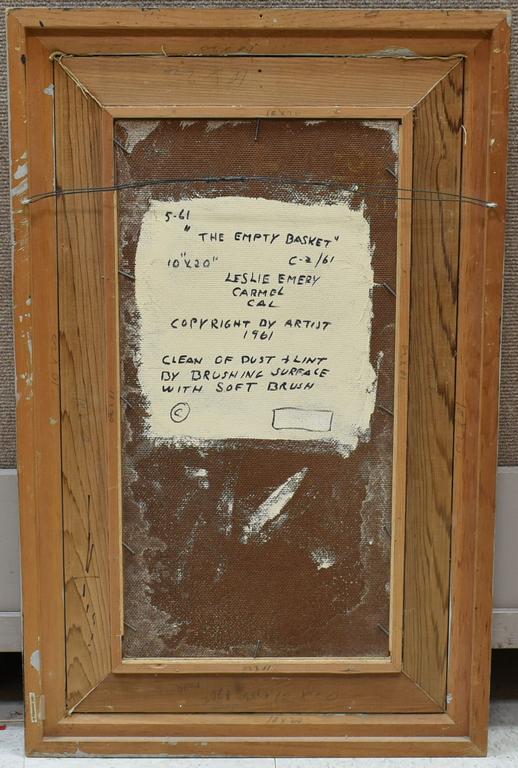 10X20
5-61
"THE EMPTY BASKET"
10"X20" C-2/61
LESLIE EMERY
CARMEL
CAL
COPYRIGHT BY ARTIST
1961
CLEAN OF DUST + LINT
BY BRUSHING SURFACE
WITH SOFT BRUSH
©
10X20